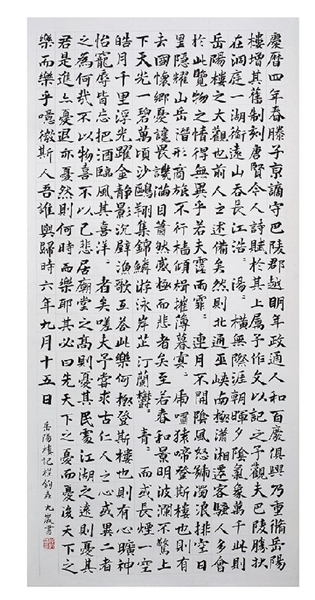 慶曆四年春滕子京謫守巴陵郡越明年政通人和百廢俱興乃重脩岳陽
樓增其舊制刻唐賢今人詩賦於其上屬予作文以記之予觀夫巴陵勝狀
在洞庭一湖銜遠山吞長江浩〻湯〻橫無際涯朝暉夕陰氣象萬千此則
岳陽樓之大觀也前人之述備矣然則北通巫峽南極瀟湘遷客騷人多會
於此覽物之情得無異乎若夫霪雨霏〻連月不開陰風怒號濁浪排空日
星隱曜山岳潛形商旅不行檣傾楫摧薄暮冥〻虎嘯猿啼登斯樓也則有
去國懷鄉憂讒畏譏滿目蕭然感極而悲者矣至若春和景明波瀾不驚上
下天光一碧萬頃沙鷗翔集錦鱗游泳岸芷汀蘭鬱〻青〻而或長煙一空
皓月千里浮光躍金靜影沉璧漁歌互答此樂何極登斯樓也則有心曠神
怡寵辱皆忘把酒臨風其喜洋〻者矣嗟夫予嘗求古仁人之心或異二者
之為何哉不以物喜不以己悲居廟堂之高則憂其民處江湖之遠則憂其
君是進亦憂退亦憂然則何時而樂耶其必曰先天下之憂而憂後天下之
樂而樂乎噫微斯人吾誰與歸時六年九月十五日
岳陽樓記 九歲書